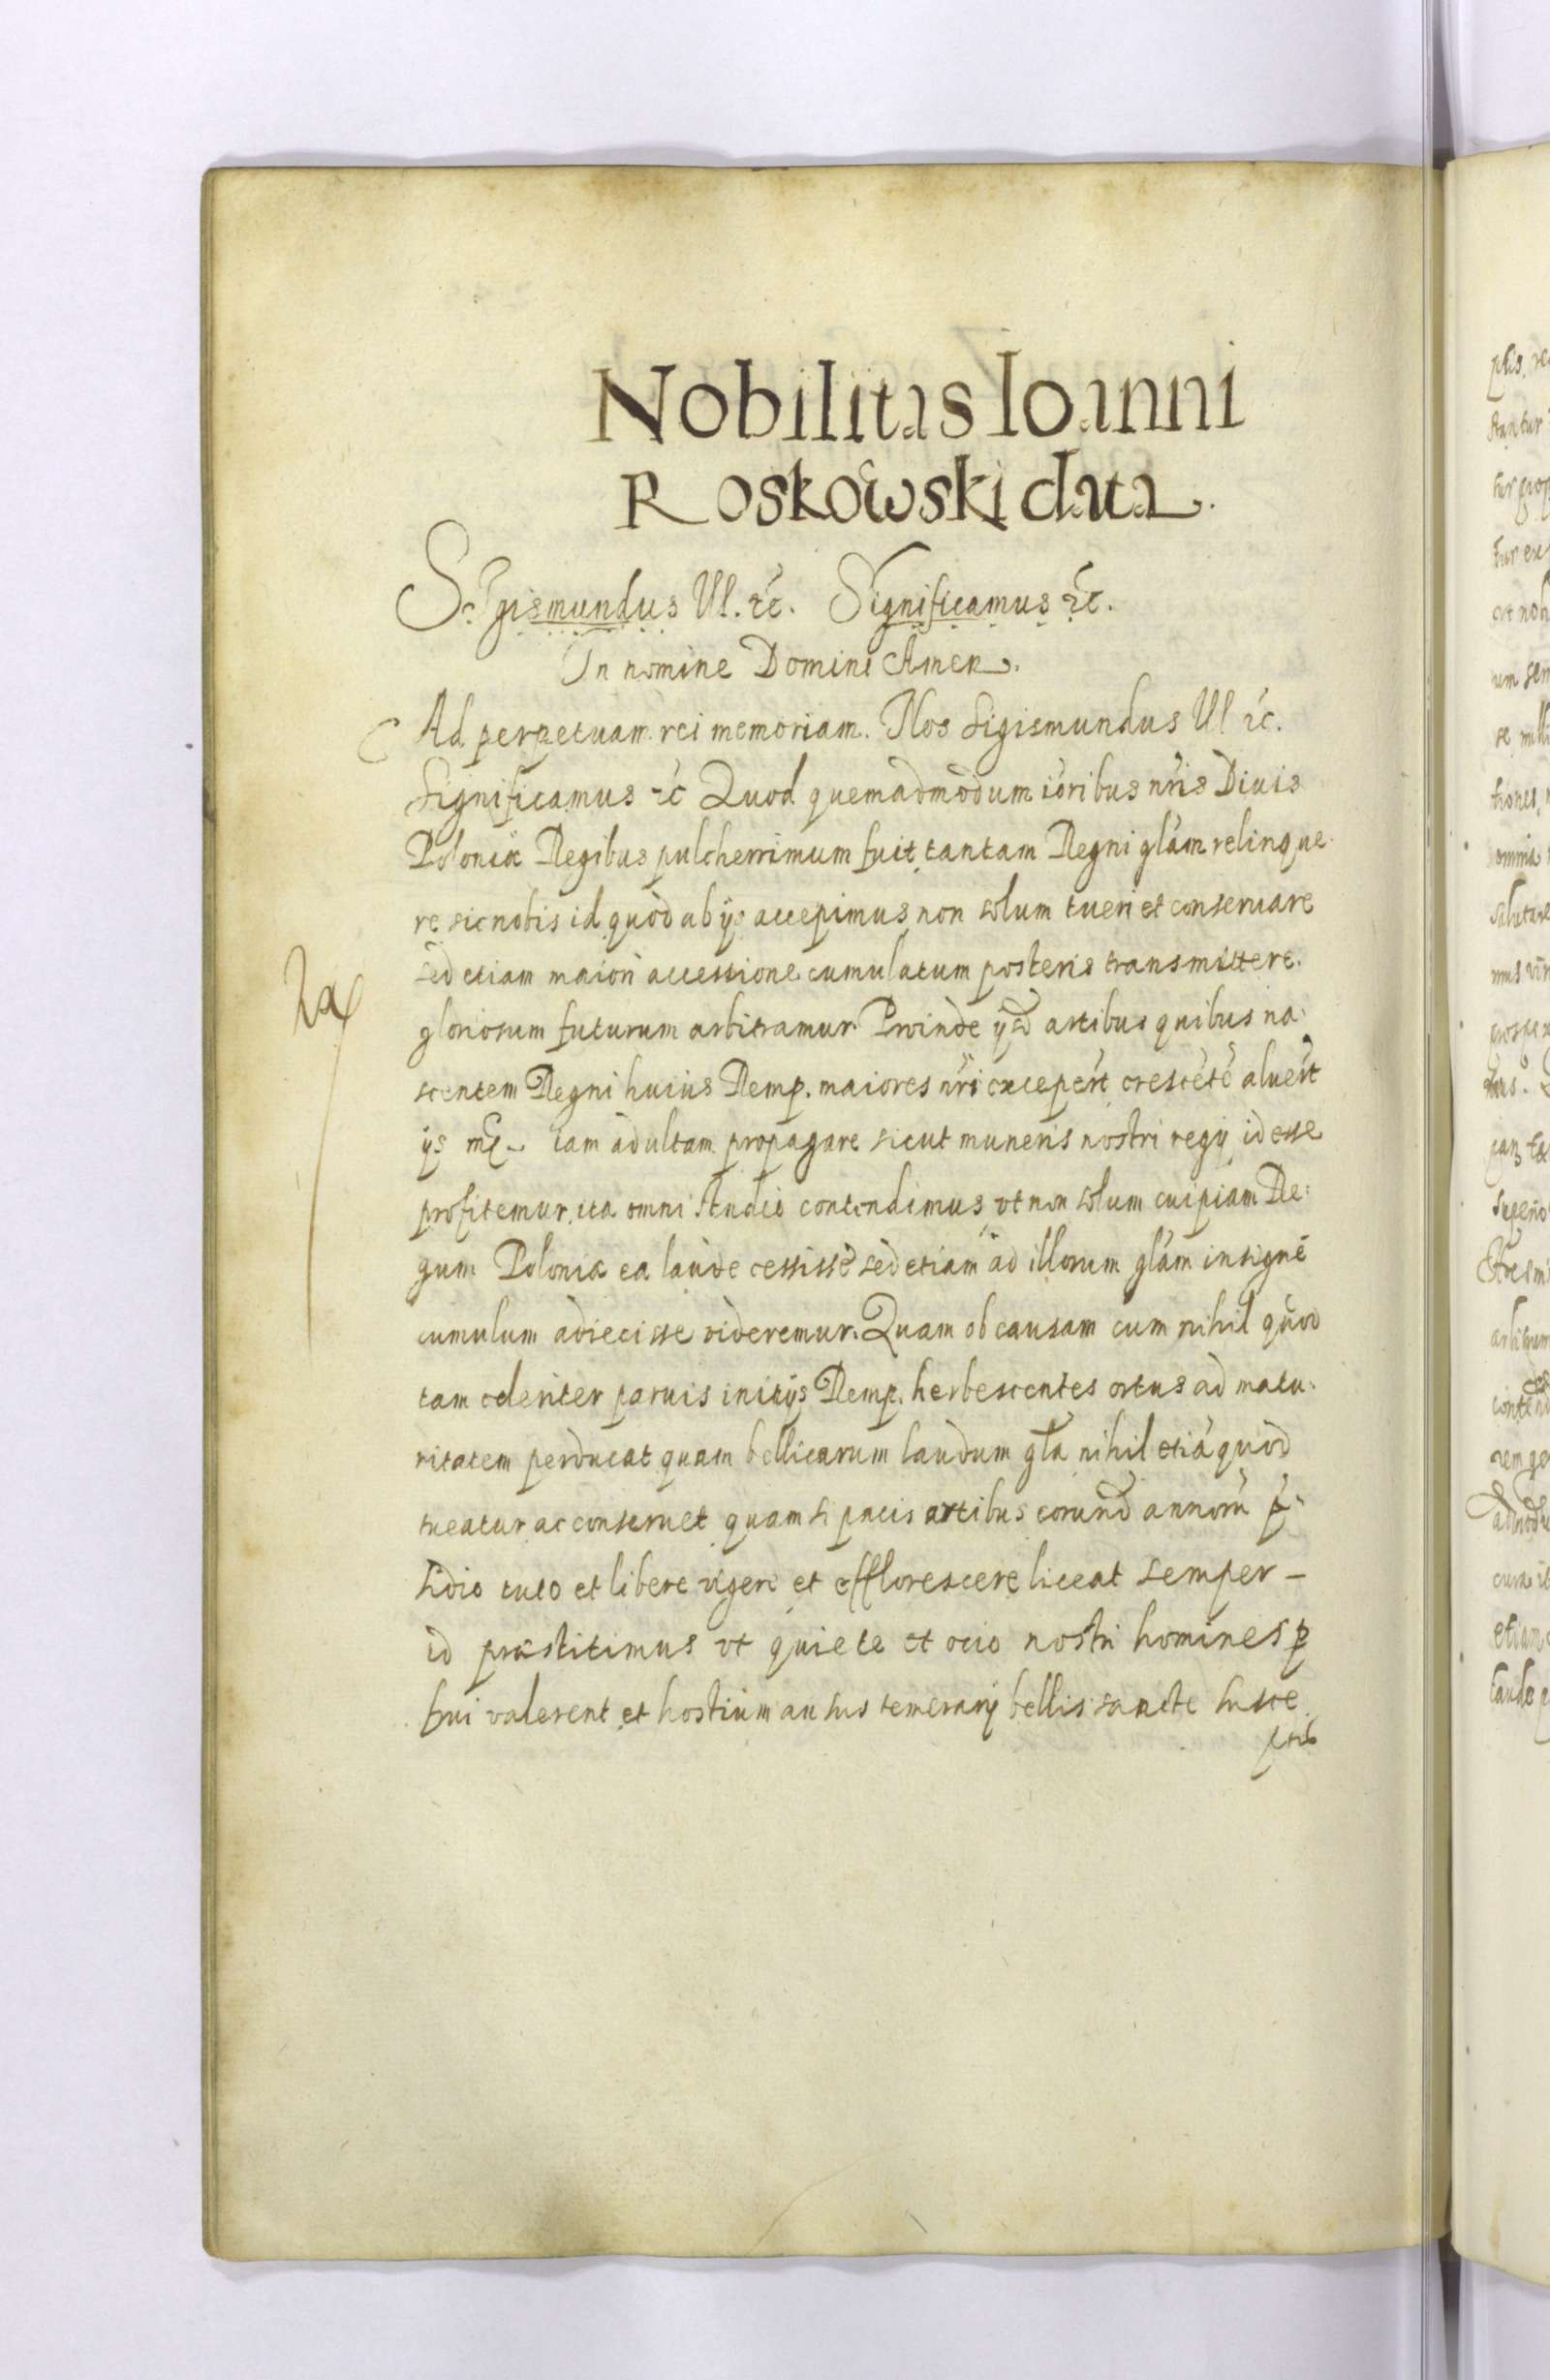 Nobilitas Ioanni
Roskowski data.
Sigismundus III. etc. Significamus etc.
In nomine Domini Amen.
Ad perpetuam rei memoriam. Nos Sigismundus III etc.
Significamus etc Quod quemadmodum iōribus nr̄is Diuis
Poloniæ Regibus pulcherrimum fuit tantam Regni glām relinque
re sic nobis id quòd ab ijs accepimus non solum tueri et conseruare
sed etiam maiori accessione cumulatum posteris transmittere.
gloriosum futurum arbitramur. Proinde artibus quibus na:
scentem Regni huius Remp. maiores nr̄i excepert̄ crescētē aluert̄
ijs iam adultam propagare sicut muneris nostri regij id esse
profitemur, ita omni studio contendimus vt non solum cuipiam Re:
gum Poloniæ ea laude cessissē sed etiam ad illorum glām insignē
cumulum adiecisse videremur. Quam ob causam cum nihil quod
tam celeriter paruis initijs Remp. herbescentes ortus ad matu:
ritatem perducat quam bellicarum laudum glā nihil etiā quòd
tueatur ac conseruet quam si pacis artibus eorund annorū p̄:
sidio tuto et libere vigeri et efflorescere liceat semper –
id præstitimus vt quiete et ocio nostri homines p̱
frui valerent et hostium ausus temerarij bellis sancte susce
ptis
ptis.